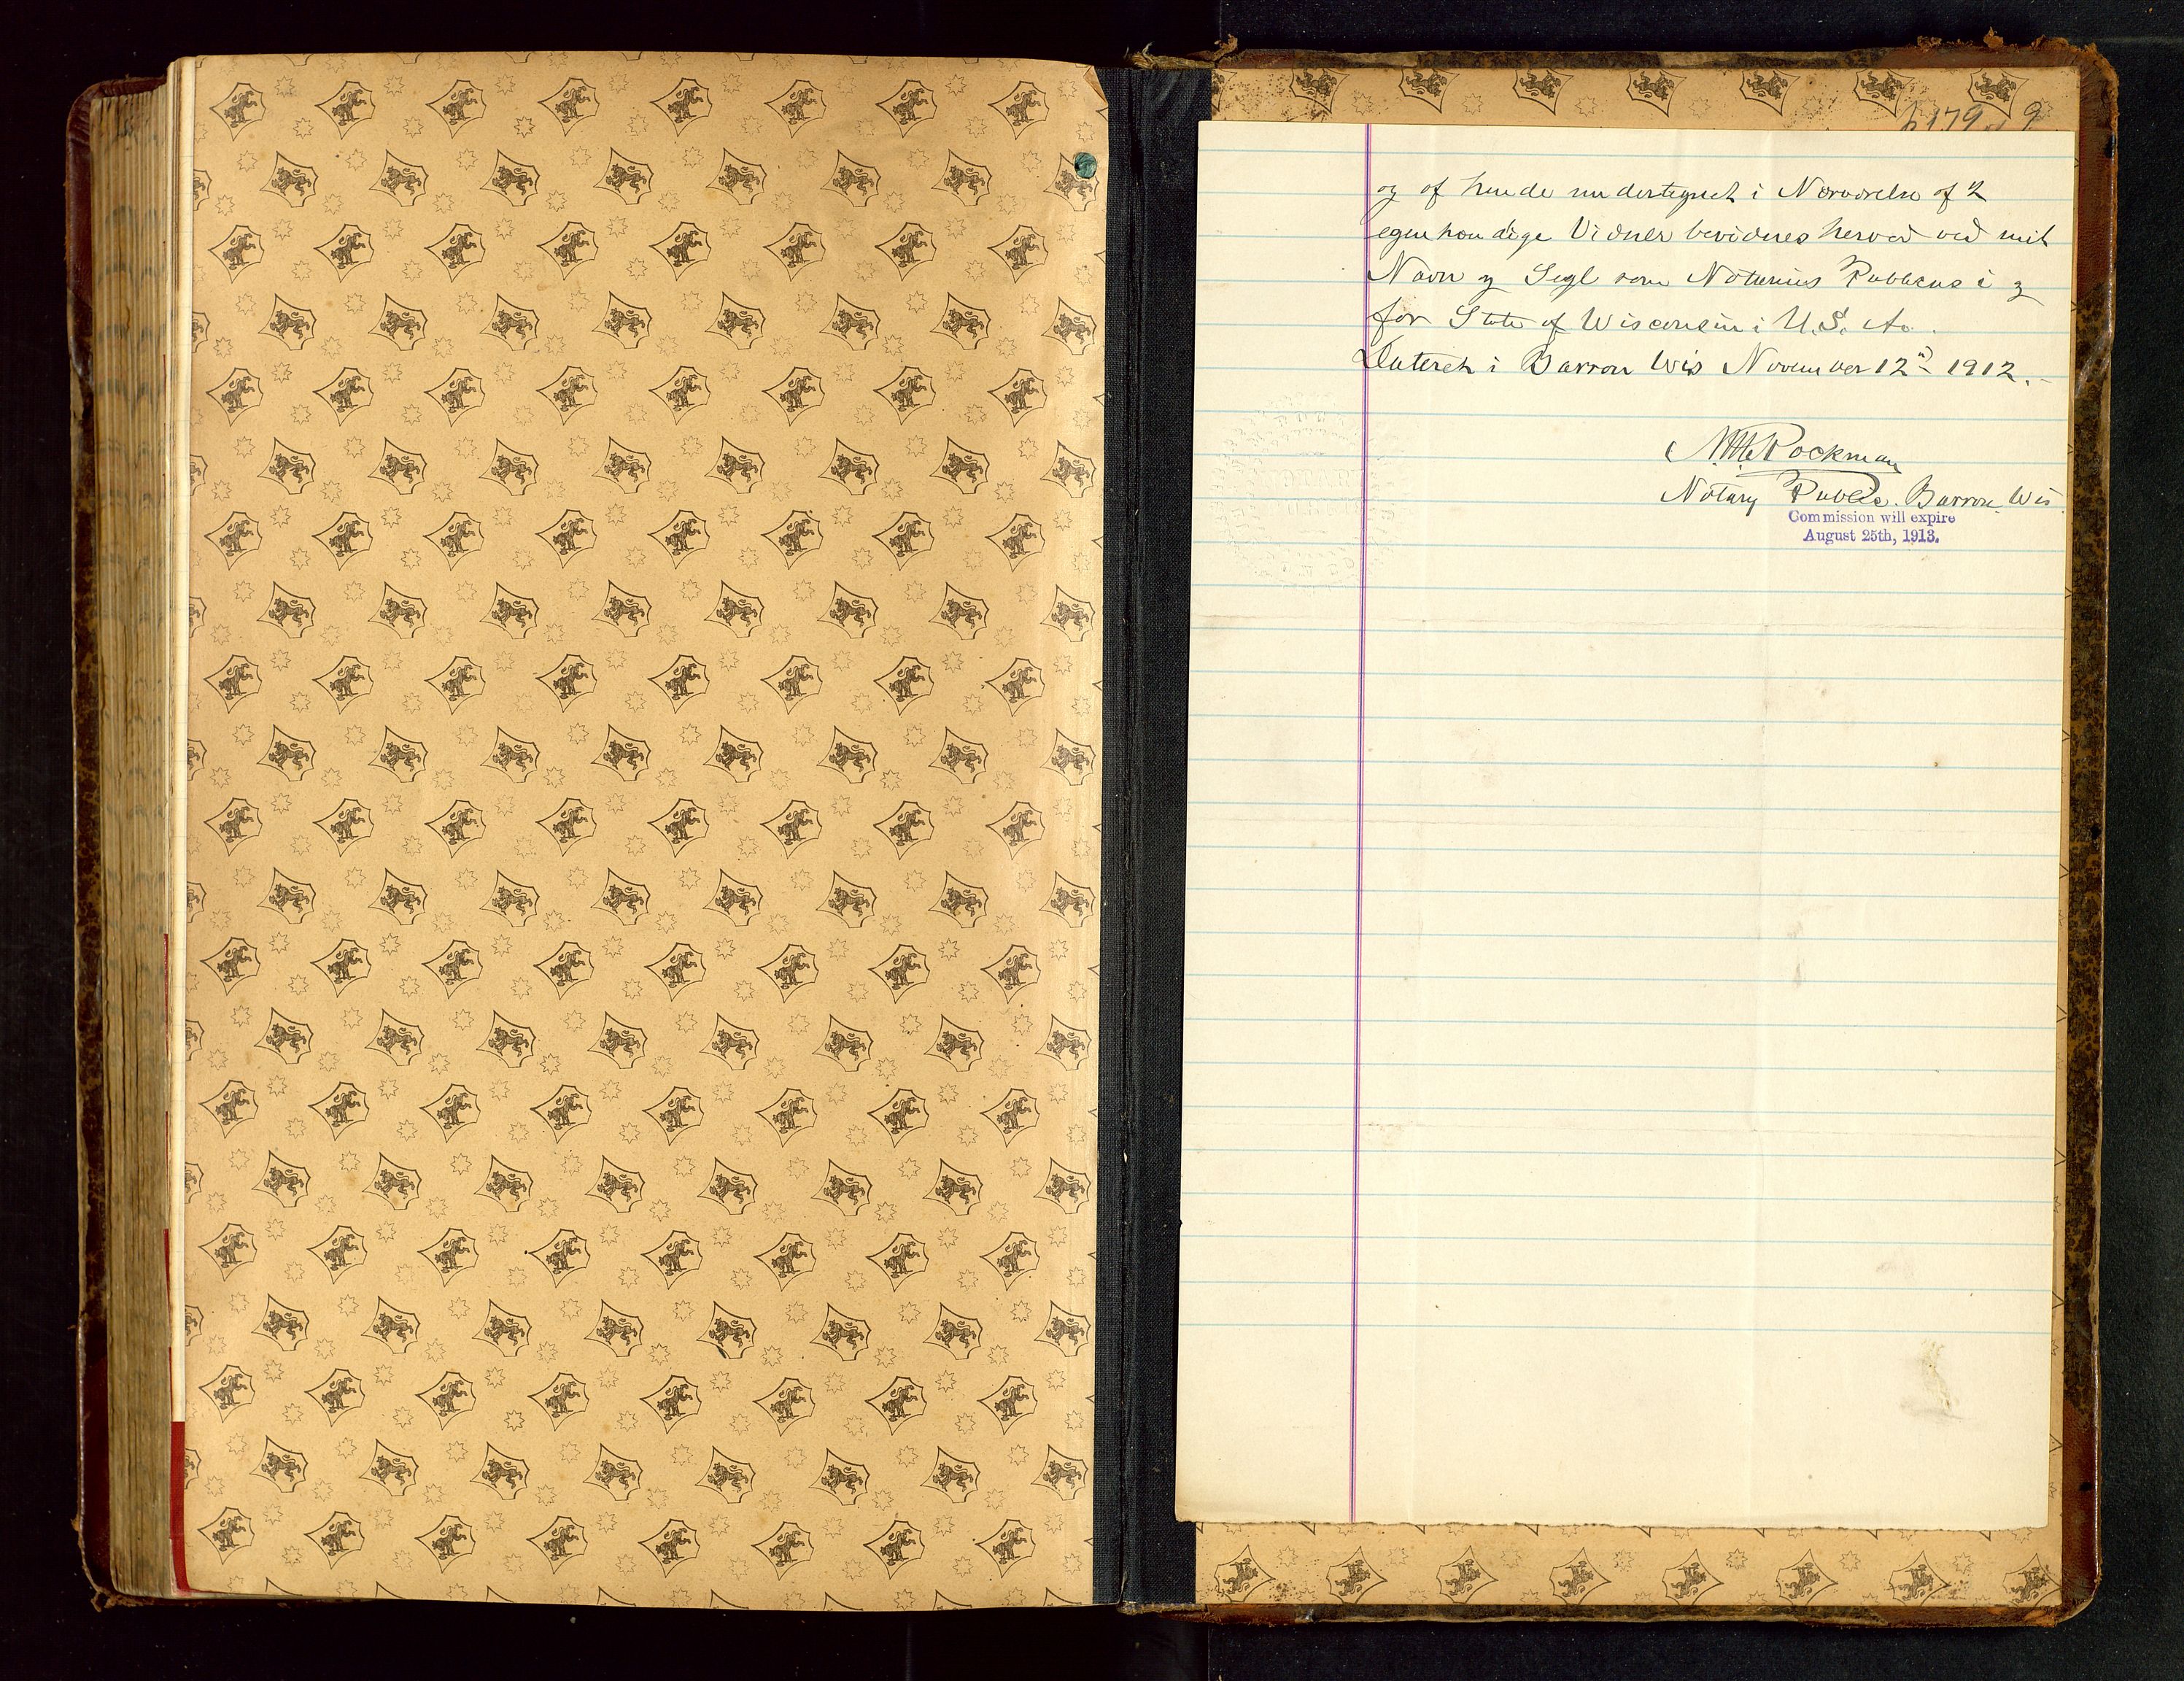 p 179 9
og of hende undertegnet i Nærværelse of 2
egenhændige Vidner bevidnes herved ved mit
Navn og Segl som Notarius Publicus i og
for State of Wisconsin i U.S. A.
Dateret i Barron Wis November 12th 1912.
Rockman
Notary Public. Barron, Wis.
Commission will expire
August 25th, 1913.